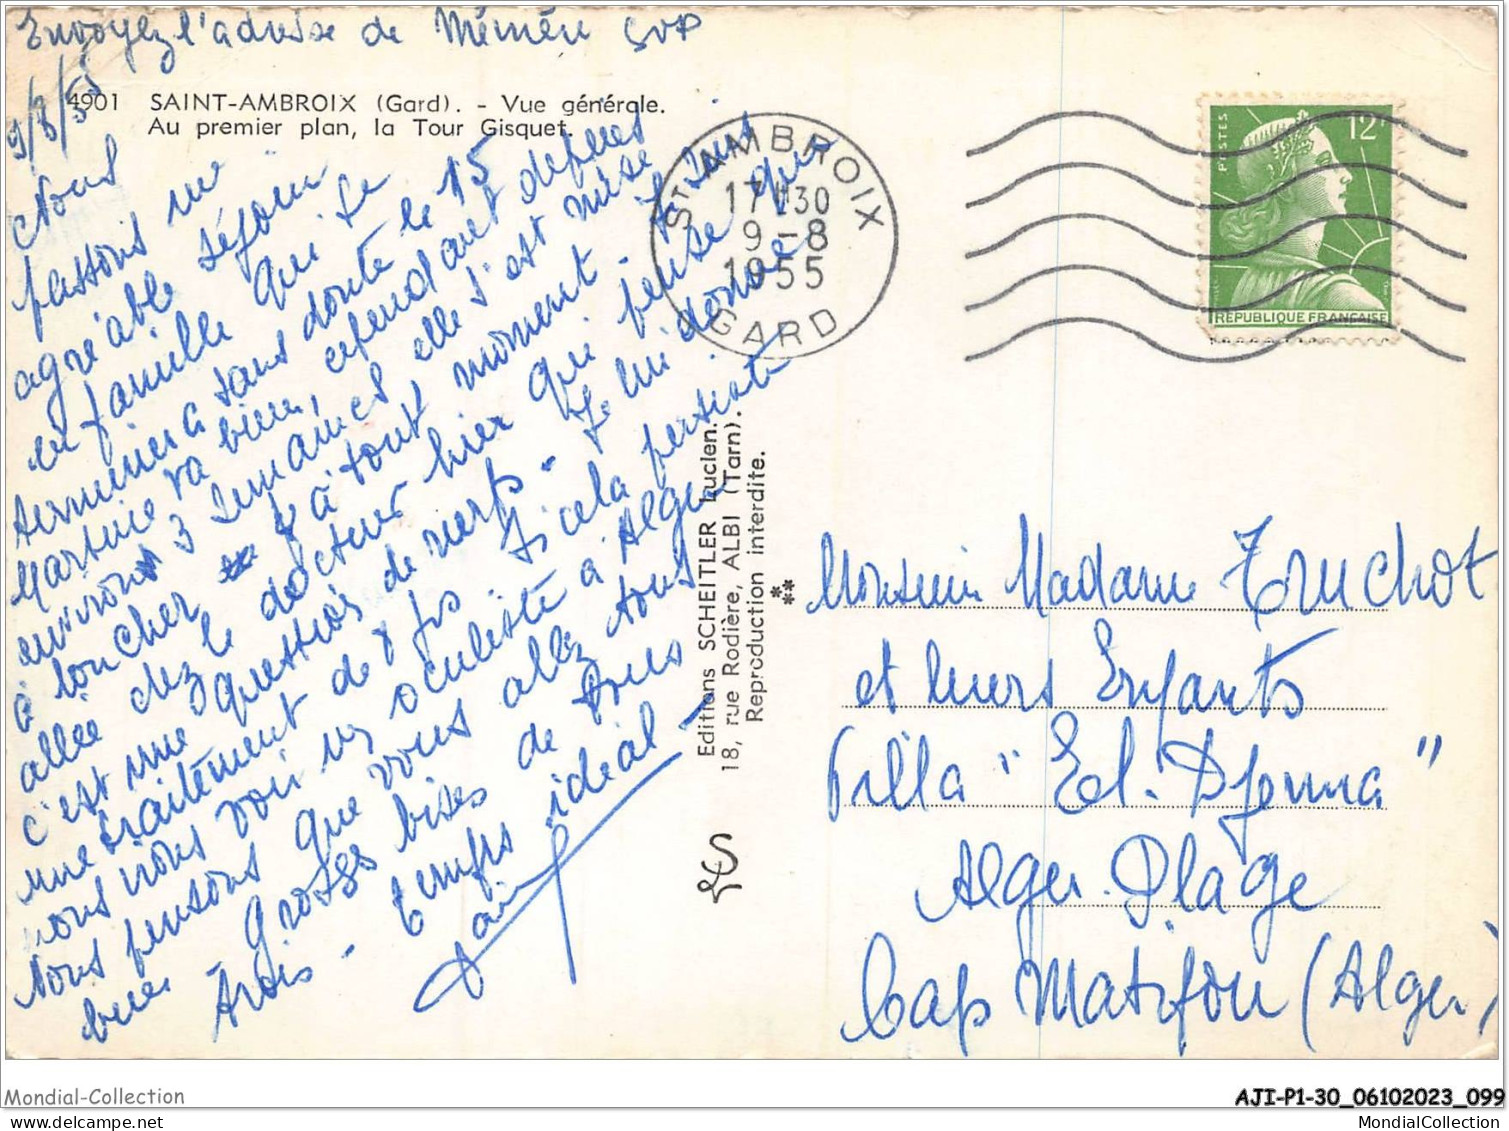 Envoyez l'adresse de Mémère SVP
9/8/55
4901 SAINT-AMBROIX (Gard). - Vue générale.
Au premier plan, la Tour Gisquet.
Nous
passons un
agréable séjour
en famille qui se
terminera sans doute le 15
Martine va bien, cependant depuis
environ 3 semaines elle s'est mise
à loucher à tout moment je suis
allée chez le docteur hier qui pense que
c'est une question de nerfs - Je lui donne
une traitement de si cela persiste
nous irons voir un oculiste à Alger
Nous pensons que vous allez tous
bien grosses bises de tous
trois - temps idéal -
ST AMBROIX
17H30
9-8
1955
GARD
POSTES
12F
REPUBLIQUE FRANÇAISE
Editions SCHEITLER Lucien.
18, rue Rodière, ALBI (Tarn).
Reproduction interdite.
Monsieur Madame Truchot
et leurs Enfants
Villa "El. Djenna"
Alger. Plage
Cap Matifou (Alger)
Mondial-Collection
AJI-P1-30_06102023_099
mondialcollection.delcampe.net
MondialCollection